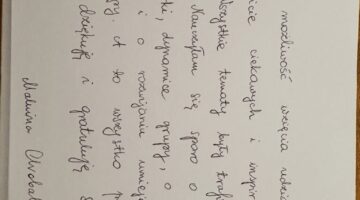 możliwość wzięcia udzia
cie ciekawych i inspir
Wszystkie tematy były traf
Nauczyłam się sporo o
ki, dynamice grupy, o
i o rozwijaniu umieję
py. A to wszystko p
dziękuję i gratuluję s
Malwina